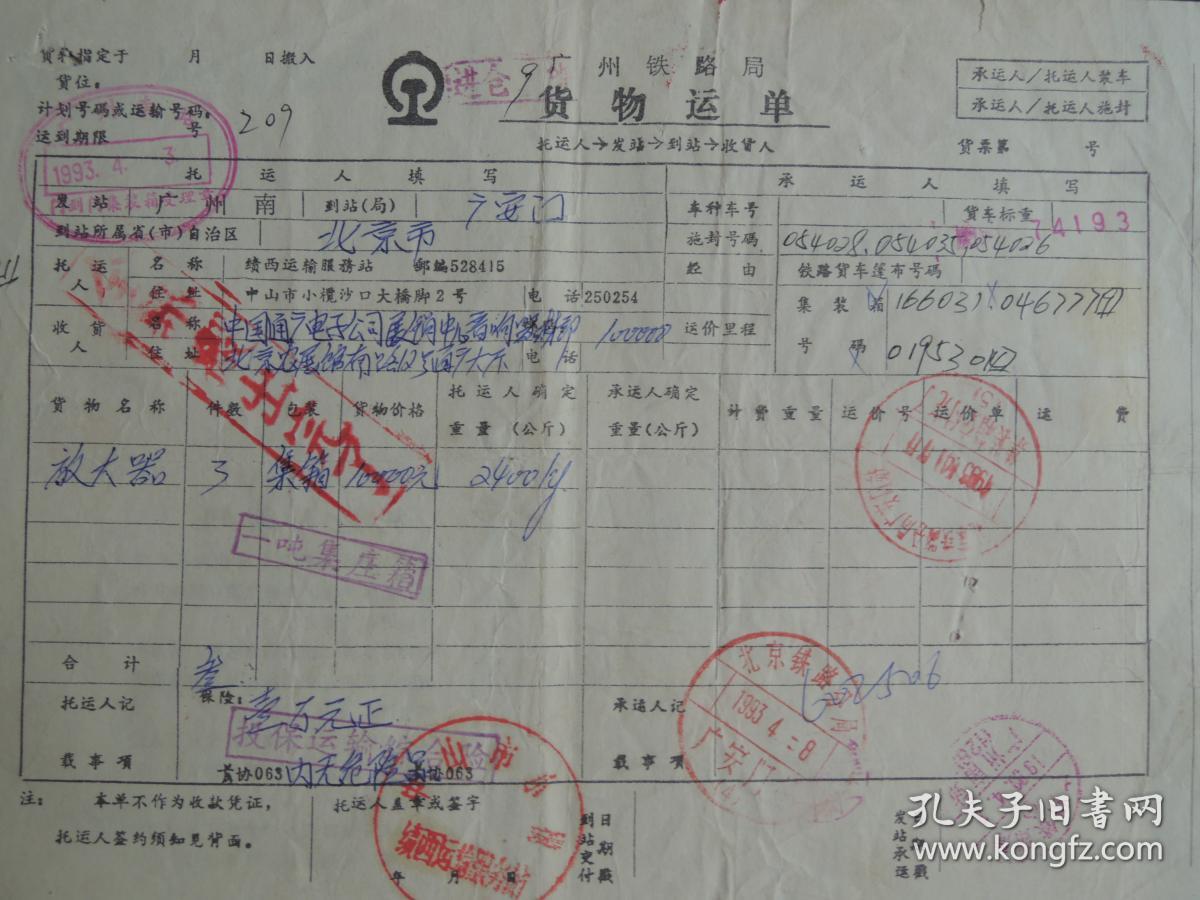 货物指定于 月 日搬入
货位。
计划号码或运输号码:
运到期限 号 209
1993. 4. 3
进仓 9
广州铁路局
货物运单
托运人→发站→到站→收货人
承运人/托运人装车
承运人/托运人施封
货票第 号
托运人填写
承运人填写
发站 广州南 到站(局) 广安门
车种车号 货车标重
74193
到站所属省(市)自治区 北京市
施封号码 054028.054035.054026
托运人 名称 绩西运输服務站 郵編528415
经由 铰路货车篷布号码
住址 中山市小欖沙口大橋脚2号 电话250254
集装箱号码 166031.046777
019530
收货人 名称 中国通广电子公司展销中心音响 100000
运价里程
住址 北京 通广大厦 电话
货物名称 件数 包装 货物价格 托运人确定重量(公斤) 承运人确定重量(公斤) 计费重量 运价号 运价单 运费
放大器 3 集箱 100000元 2400kg
一吨集庄箱
合计
叁
托运人记载事项
保险: 壹万元正
投保运输 险
协063 内无危险品 协063
承运人记载事项
002506
北京铁路局
1993 4 = 8
广安门
注: 本单不作为收款凭证,
托运人签约须知见背面。
托运人盖章或签字
年 月 日
山市
绩西运输服务站
到站交付日期戳
发站承运 戳
孔夫子旧书网
www.kongfz.com